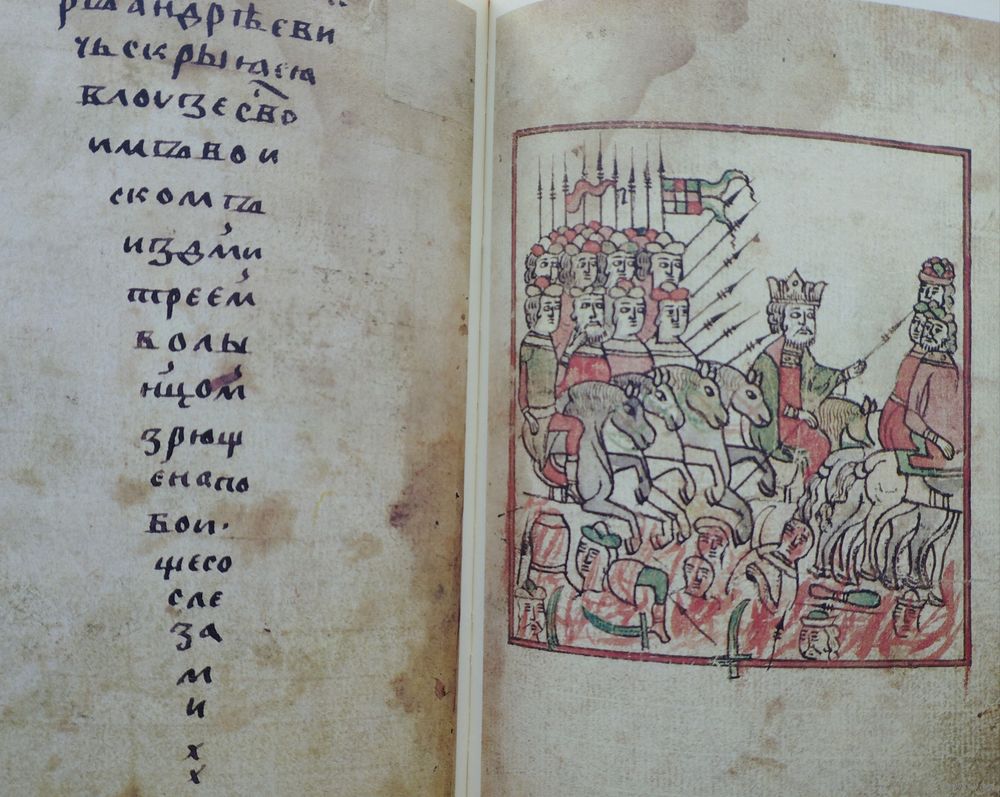 рѣꙗандрѣеви
чьскрыꙗсꙗ
блоуꙁесво
имъвои
скомъ
иꙁдми
треем
волы
нщом
ꙁрющ
енапо
бои·
щесо
сле
ꙁа
м
и
х
х